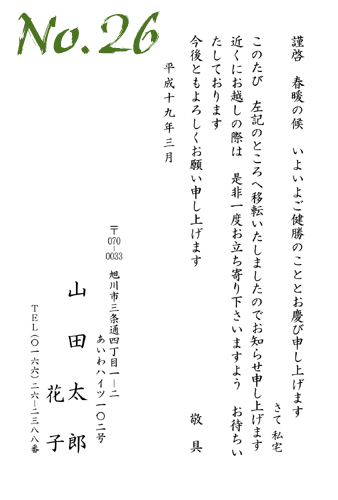 No.26
謹啓　春暖の候　いよいよご健勝のこととお慶び申し上げます
さて 私宅
このたび　左記のところへ移転いたしましたのでお知らせ申し上げます
近くにお越しの際は　是非一度お立ち寄り下さいますよう　お待ちい
たしております
今後ともよろしくお願い申し上げます
敬　具
平成十九年三月
〒070-0033　旭川市三条通四丁目一―二
あいわハイツ一〇二号
山　田　太　郎
花　子
TEL(〇一六六)二六―二三八八番